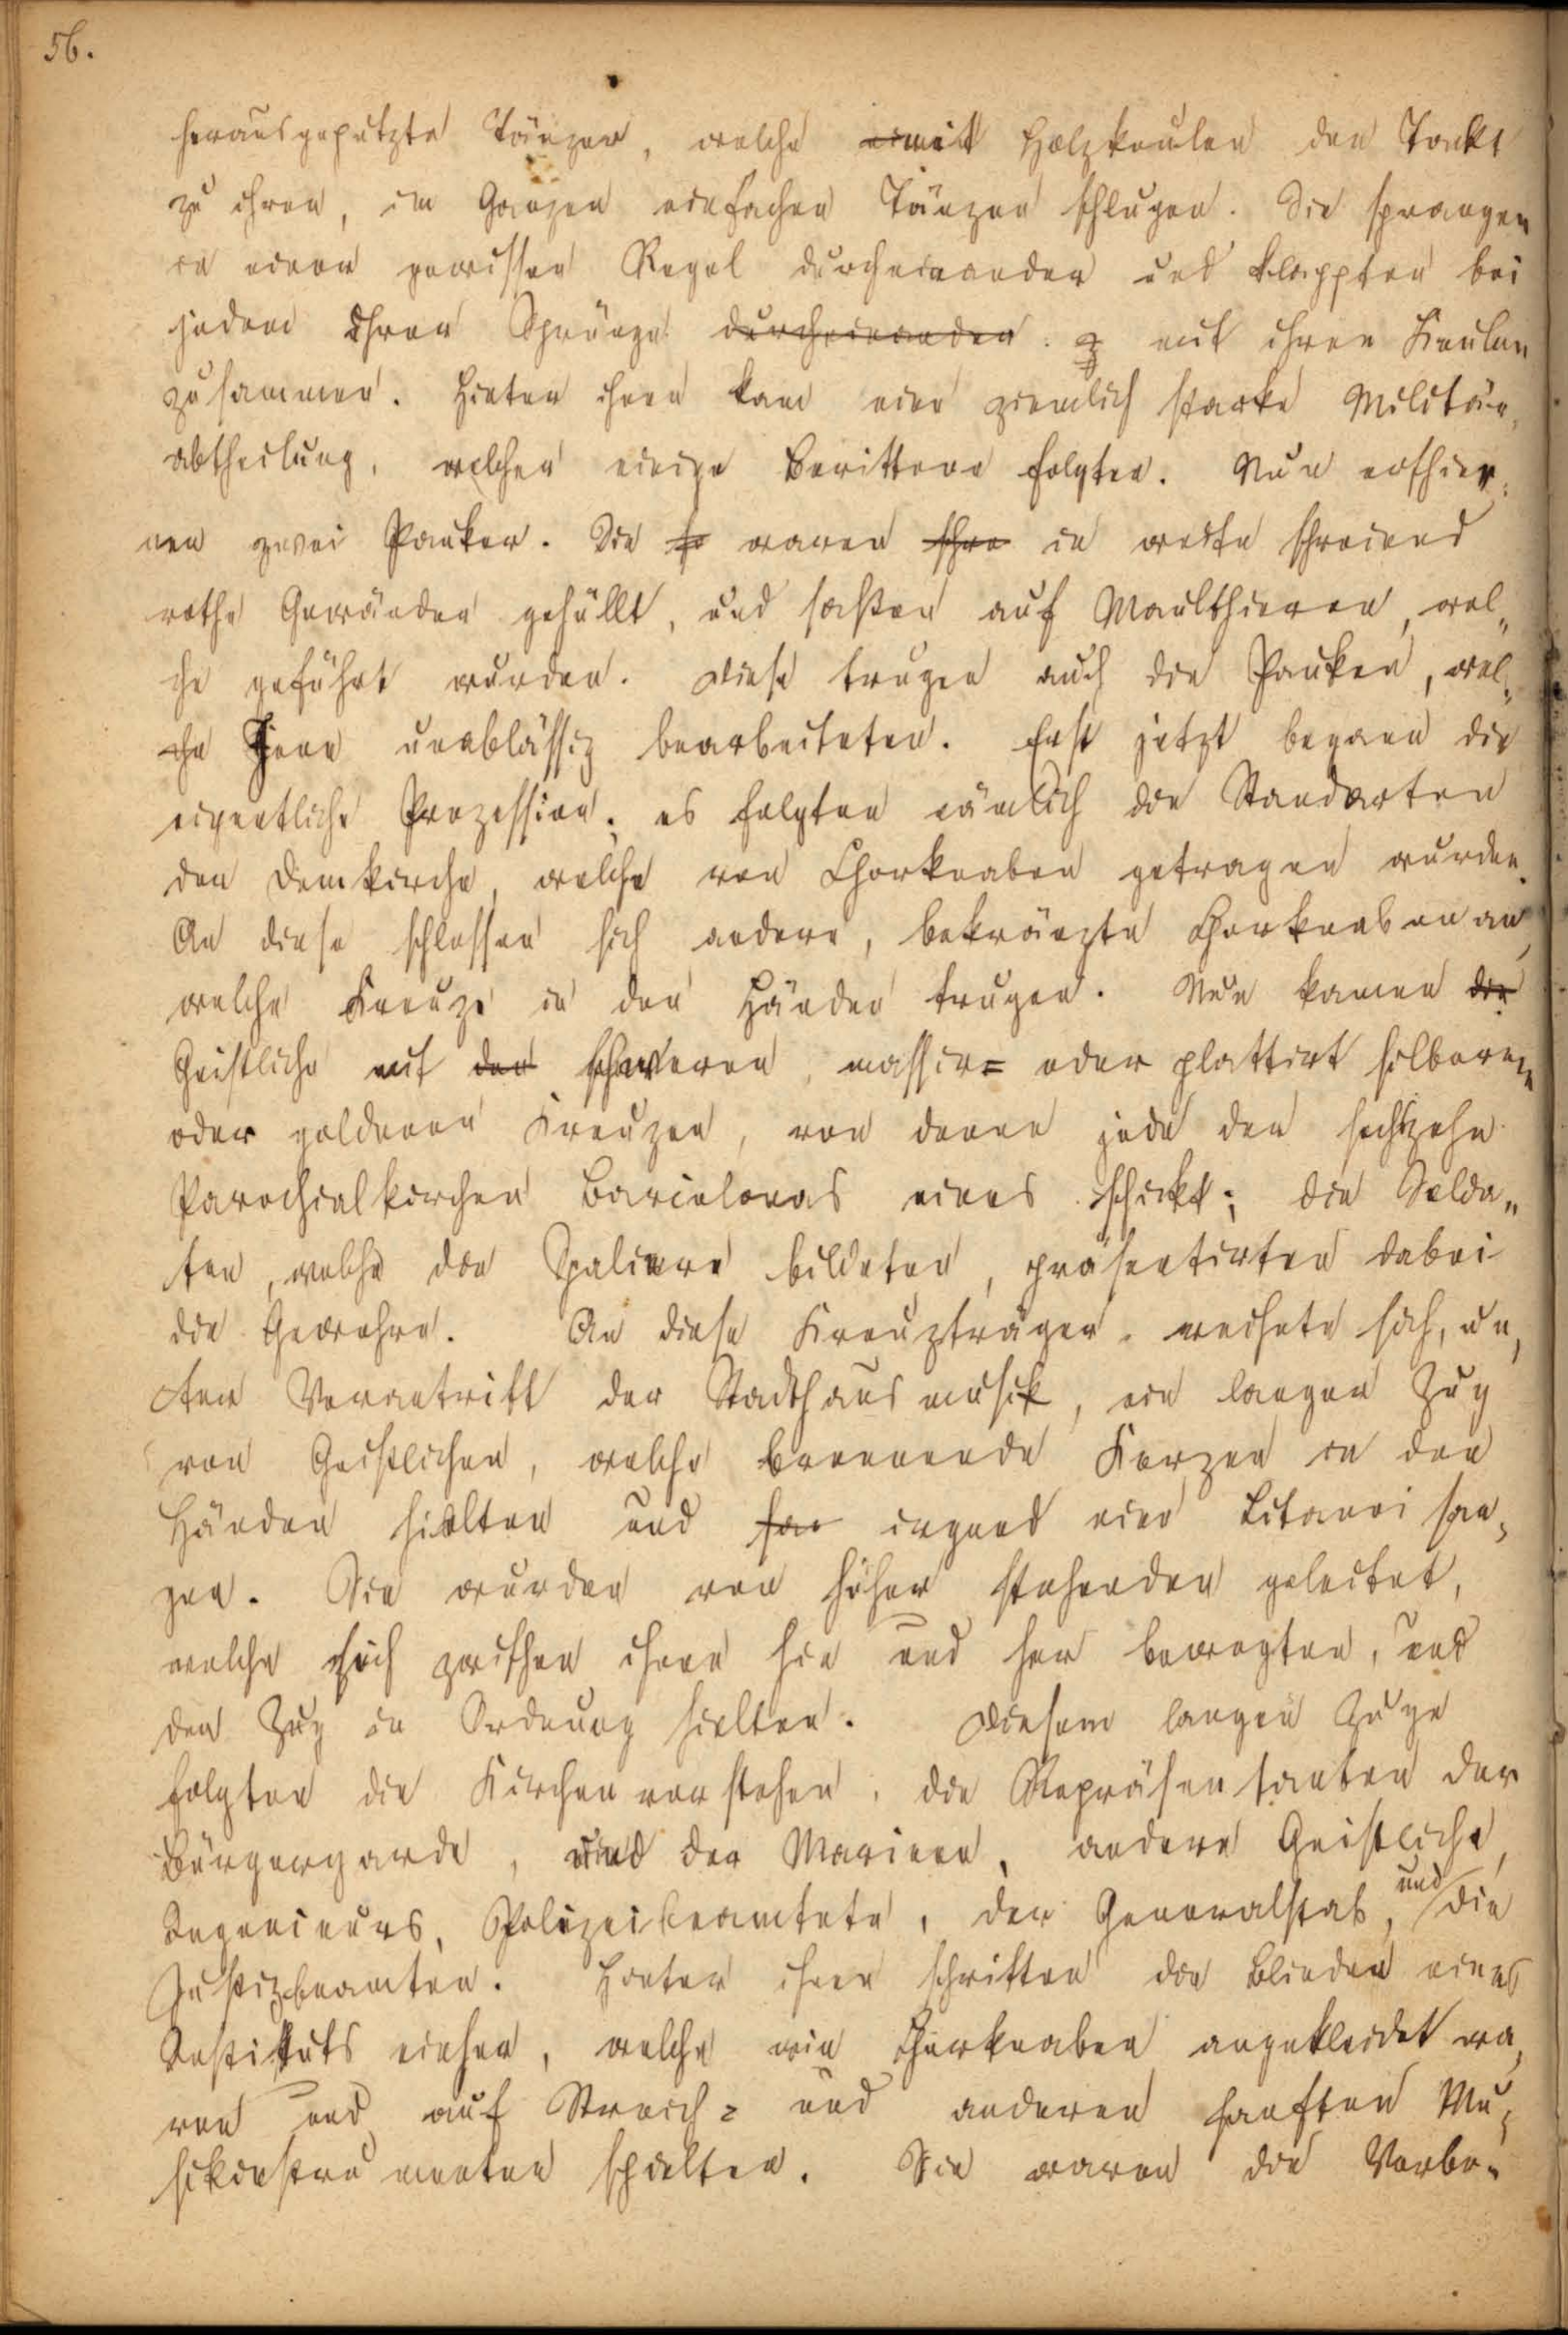 56.
herausgeputzte Tänzer, welche mit Holzkeulen den Takt
zu ihren, im Ganzen einfachen Tänzen schlugen. Sie sprangen
in einer gewissen Regel durcheinander und klappten bei
jedem ihrer Sprünge durcheinander. z mit ihren Keulen
zusammen. Hinter ihnen kam eine ziemlich starke Militär„
abtheilung, welcher einige Berittene folgten. Nun erschie„
nen zwei Pauker. Sie waren in weite schreiend
rothe Gewänder gehüllt, und saßen auf Maulthieren, wel„
che geführt wurden. Diese trugen auch die Pauken, wel„
che Jene unablässig bearbeiteten. Erst jetzt begann die
eigentliche Prozession; es folgten nämlich die Standarten
der Domkirche, welche von Chorknaben getragen wurden.
An diese schlossen sich andere, bekränzte Chorknaben an,
welche Kreuze in den Händen trugen. Nun kamen die
Geistliche mit den schweren, massiv= oder plattirt silbernen
oder goldenen Kreuzen, von denen jede der sechszehn
Parochialkirchen Barcelonas eines schickt; die Solda„
ten, welche die Spaliere bildeten, präsentirten dabei
die Gewehre. An diese Kreuzträger reihete sich, un„
ter Vorantritt der Stadthausmusik, ein langer Zug
von Geistlichen, welche brennende Kerzen in den
Händen hielten und san irgend eine Litanei san„
gen. Sie wurden von höher stehenden geleitet,
welche sich zwischen ihnen hin und her bewegten, und
den Zug in Ordnung hielten. Diesem langen Zuge
folgten die Kirchenvorsteher, die Repräsentanten der
Bürgergarde, und der Marine, andere Geistliche,
Ingenieurs, Polizeibeamtete, der Generalstab, und die
Justizbeamten. Hinter ihnen schritten die Blinden eines
Instituts einher, welche wie Chorknaben angekleidet wa„
ren und auf Streich= und anderen sanften Mu„
sikinstrumenten spielten. Sie waren die Vorbo„